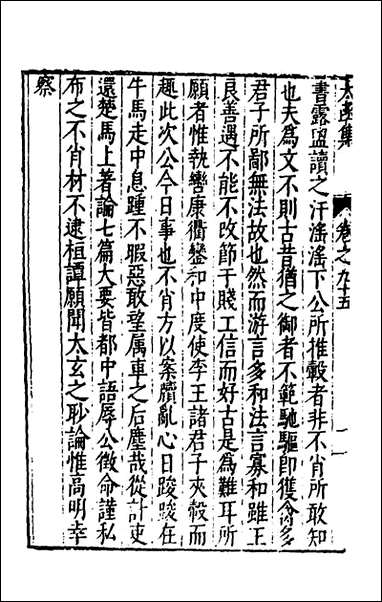 太函集 卷之九十五 二
書露盥讀之汗滛滛下公所推轂者非不肖所敢知
也夫為文不則古昔猶之御者不範馳驅即獲禽多
君子所鄙無法故也然而游言多和法言寡和雖王
良善遇不能不改節于賤工信而好古是為難耳所
願者惟執轡康衢鑾和中度使李王諸君子夾轂而
趣此次公今日事也不肖方以案牘亂心日踆踆在
牛馬走中息踵不暇惡敢望属車之后塵哉從計吏
還楚馬上著論七篇大要皆都中語辱公徵命謹私
布之不肖材不逮桓譚願聞太玄之眇論惟高明幸
察